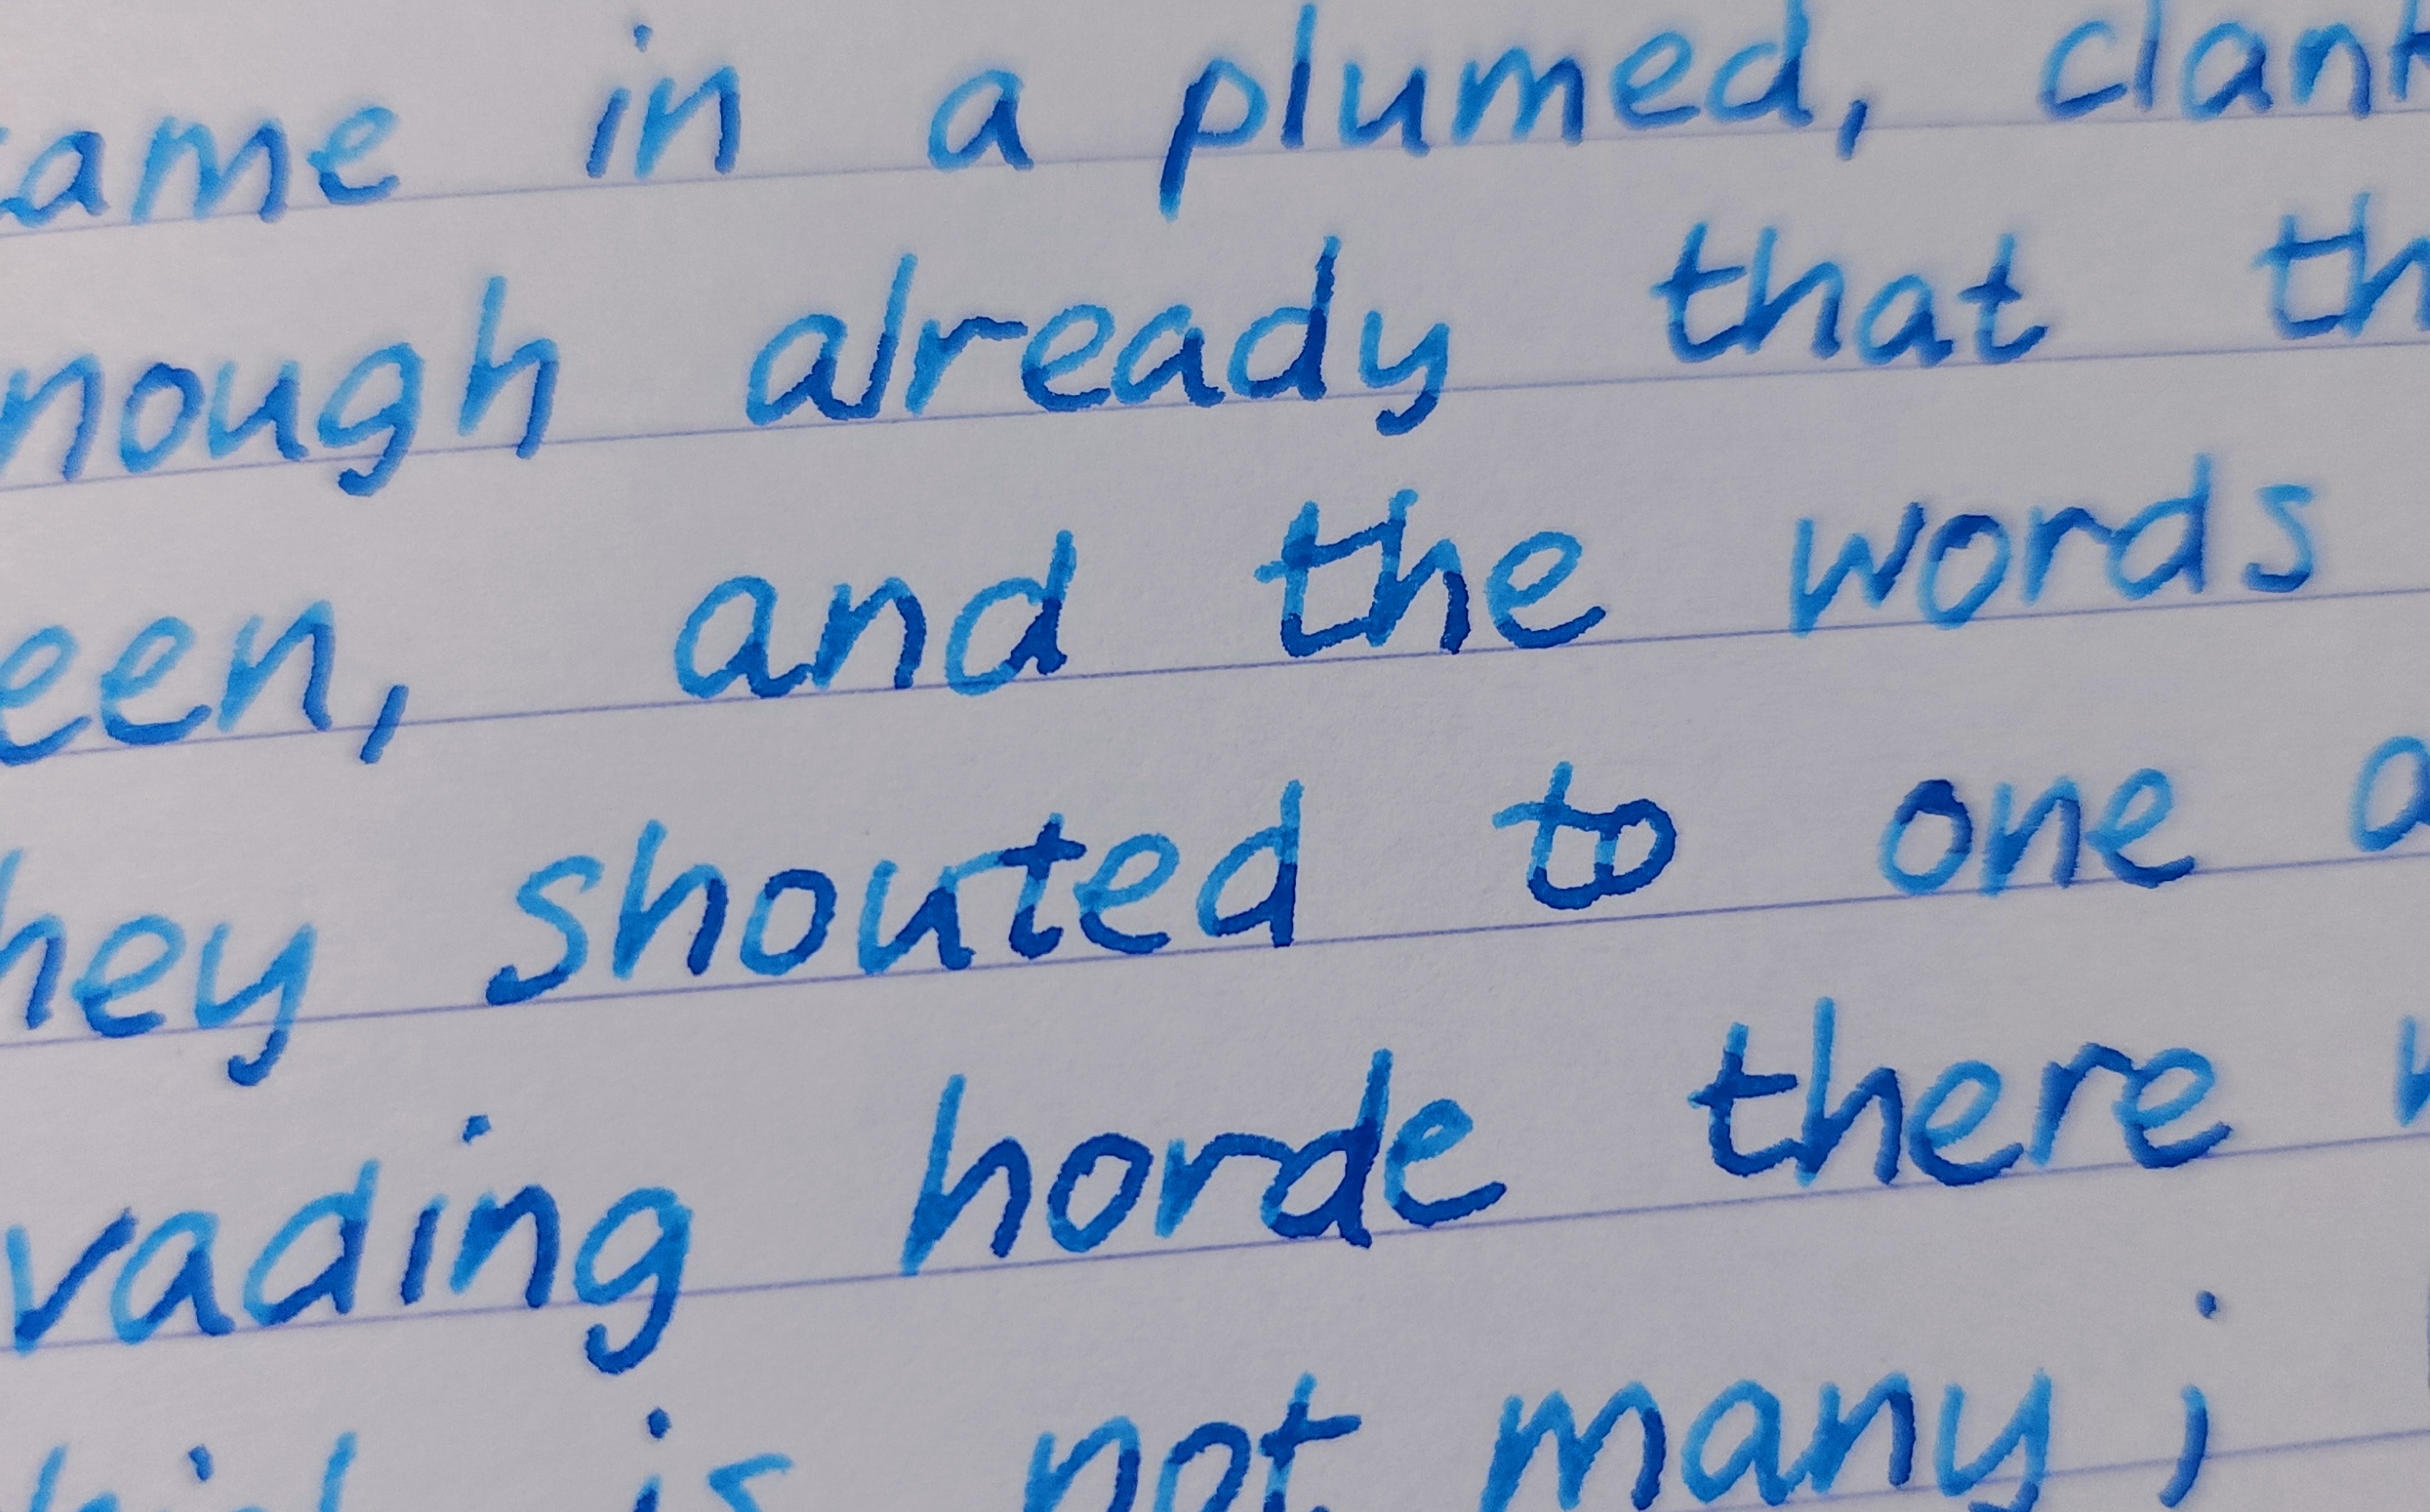 ame in a plumed, clank
nough already that th
een, and the words
hey shouted to one a
vading horde there w
is not many;